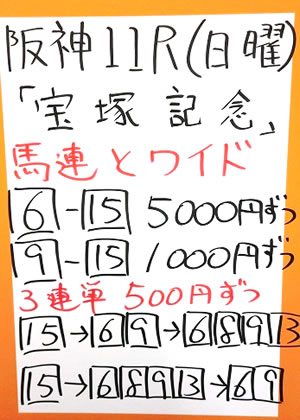 阪神11R(日曜)
「宝塚記念」
馬連とワイド
6-15 5000円ずつ
9-15 1000円ずつ
3連単 500円ずつ
15→69→68913
15→68913→69